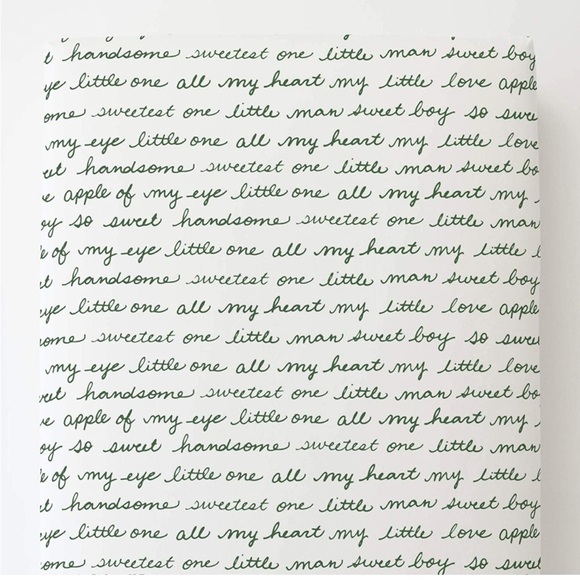 handsome sweetest one little man sweet boy
little one all my heart my little love apple
sweetest one little man sweet boy so
my eye little one all my heart my little love
handsome sweetest one little man sweet
apple of my eye little one all my heart my
so sweet handsome sweetest one little man
of my eye little one all my heart my little
handsome sweetest one little man sweet boy
eye little one all my heart my little love apple
sweetest one little man sweet boy so
my eye little one all my heart my little love
handsome sweetest one little man sweet
apple of my eye little one all my heart my
so sweet handsome sweetest one little man
of my eye little one all my heart my little
handsome sweetest one little man sweet boy
little one all my heart my little love apple
sweetest one little man sweet boy so